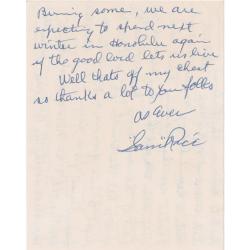 Burring some, we are
expecting to spend next
winter in Honolulu again
if the good lord lets us live
Well thats of my chest
so thanks a lot to you folks
as ever
Sam Rice